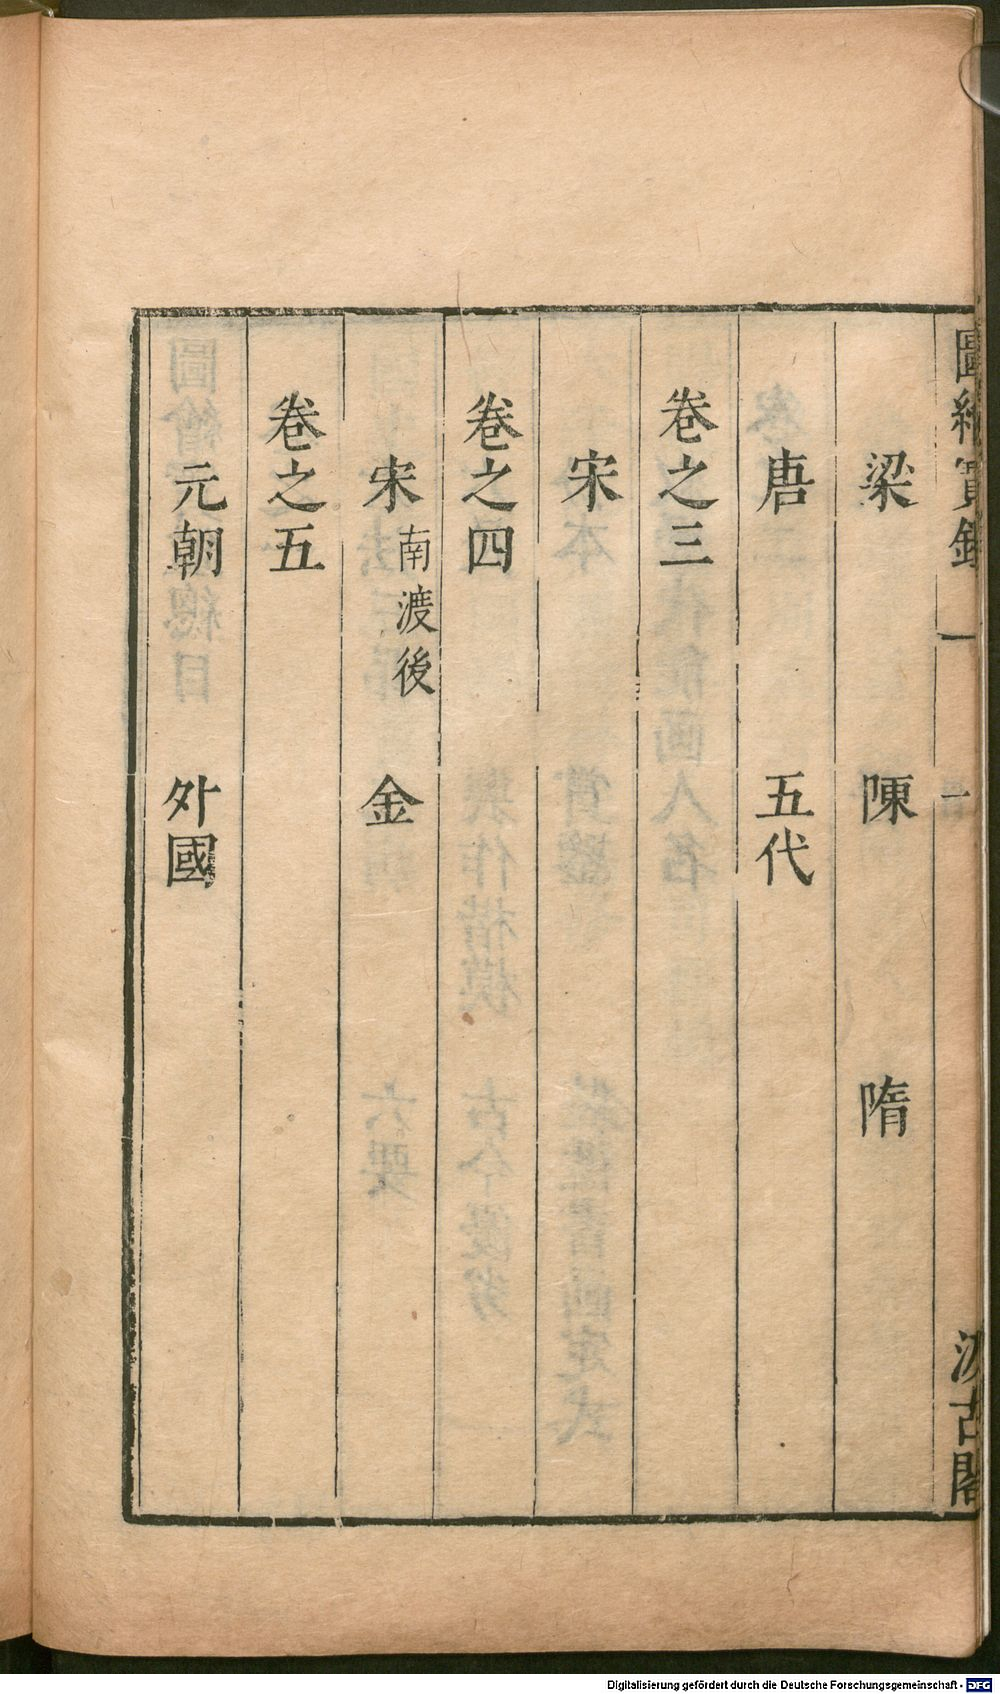 圖繪寶錄 一 一 汲古閣
梁 陳 隋
唐 五代
卷之三
宋
卷之四
宋 南渡後 金
卷之五
元朝 外國
Digitalisierung gefördert durch die Deutsche Forschungsgemeinschaft - DFG